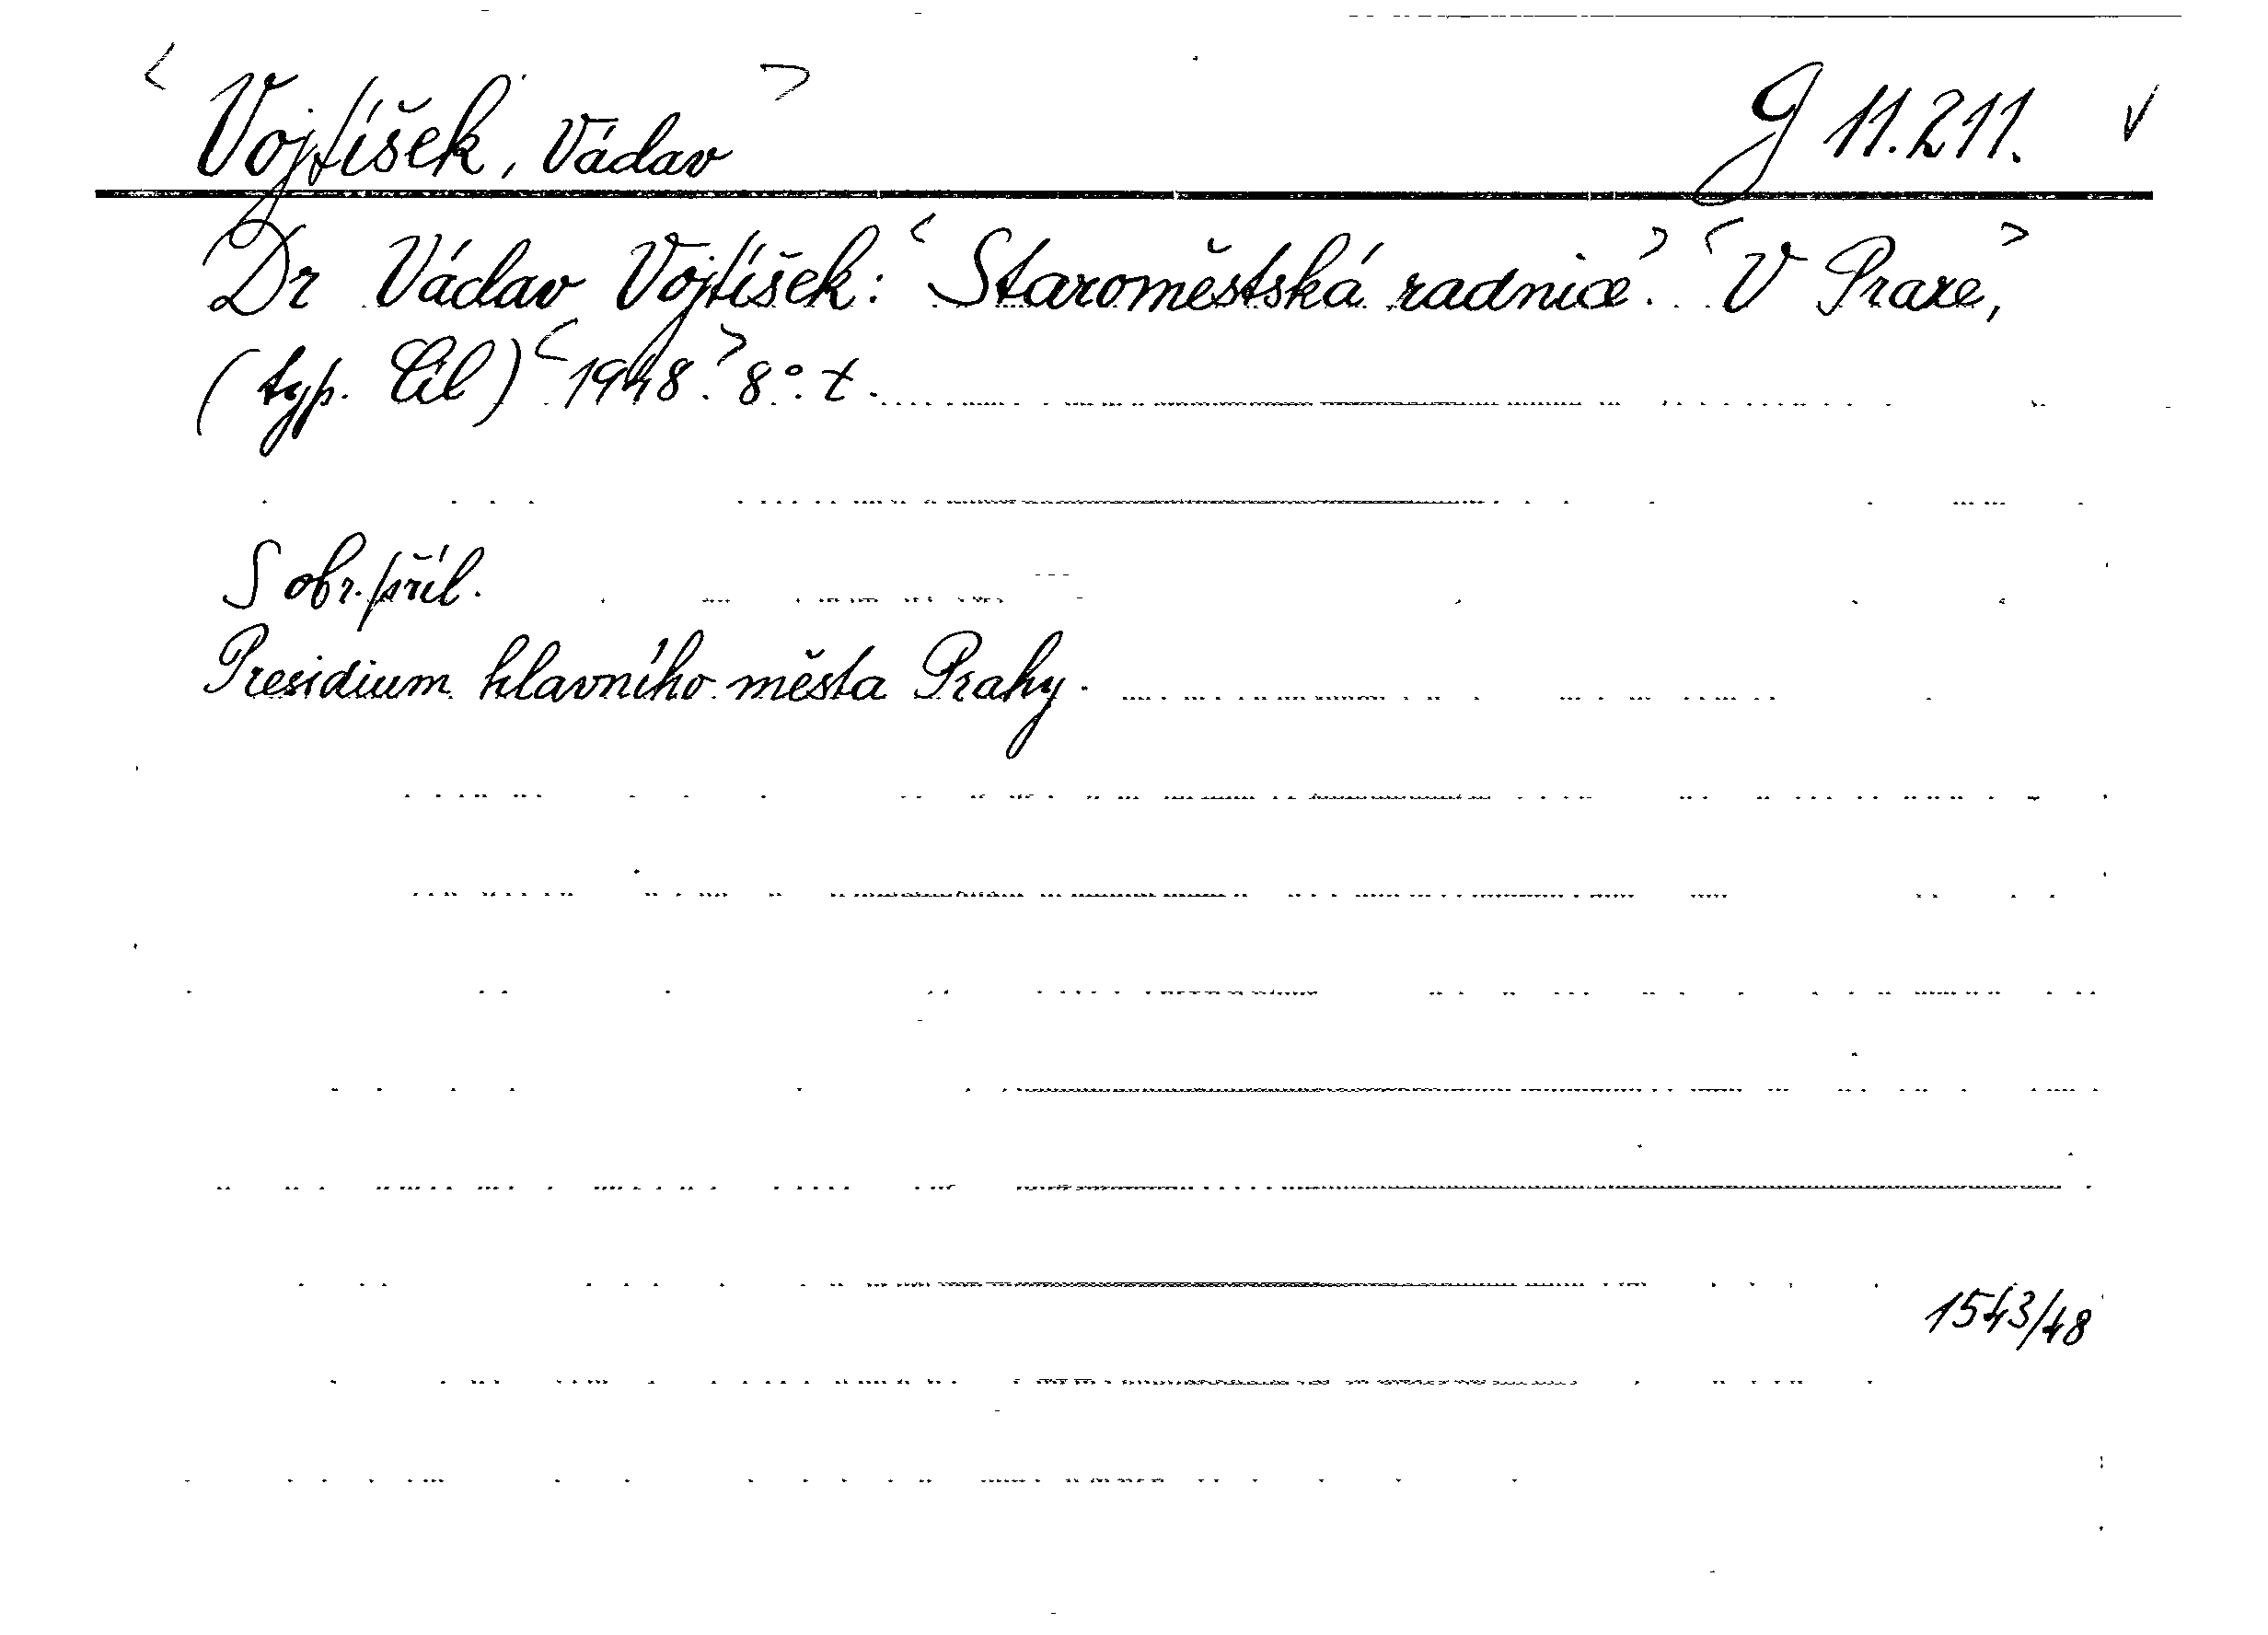 <Vojtíšek, Václav> g 11.211. ✓
Dr Václav Vojtíšek: <Staroměstská radnice.> <V Praze,>
(typ. Cíl) <1948.> 8°. t.
S obr. příl.
Presidium hlavního města Prahy.
1543/48